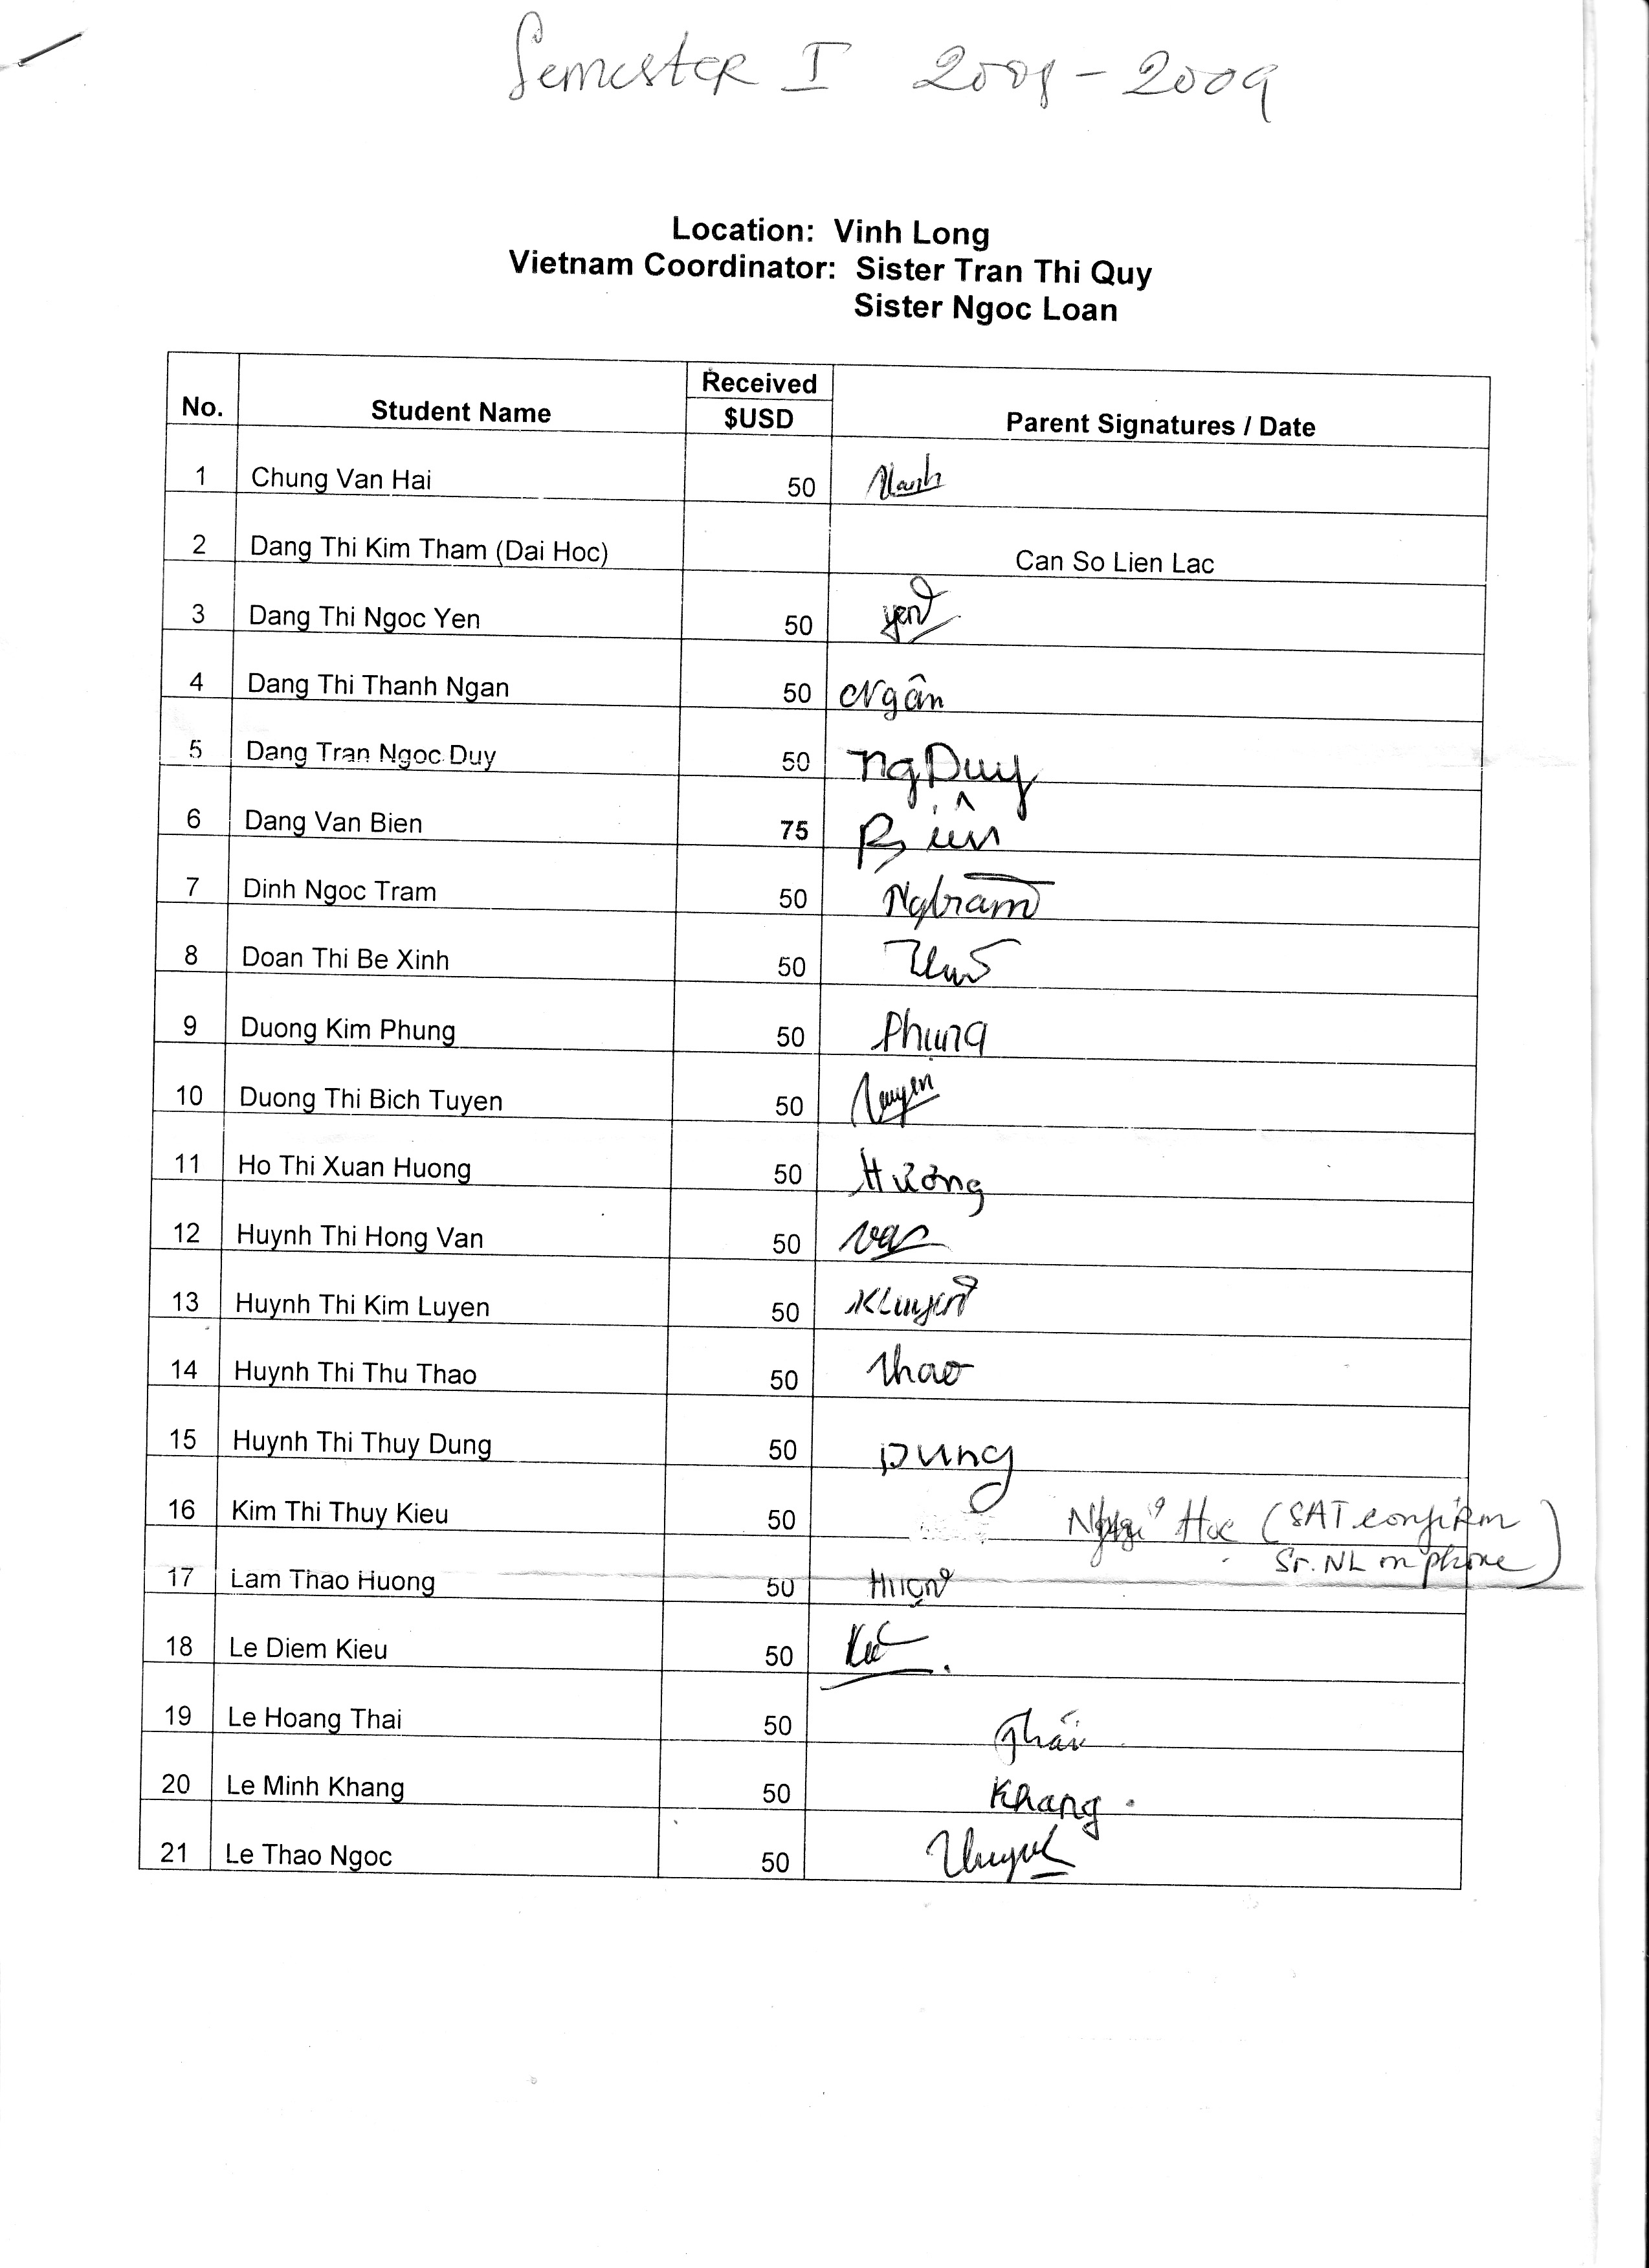 Semester I 2008-2009
Location: Vinh Long
Vietnam Coordinator: Sister Tran Thi Quy
Sister Ngoc Loan
No. Student Name Received $USD Parent Signatures / Date
1 Chung Van Hai 50
2 Dang Thi Kim Tham (Dai Hoc) Can So Lien Lac
3 Dang Thi Ngoc Yen 50 yen
4 Dang Thi Thanh Ngan 50 Ngân
5 Dang Tran Ngoc Duy 50 Ng Duy
6 Dang Van Bien 75 Biên
7 Dinh Ngoc Tram 50 Ngtram
8 Doan Thi Be Xinh 50
9 Duong Kim Phung 50 Phung
10 Duong Thi Bich Tuyen 50 Tuyen
11 Ho Thi Xuan Huong 50 Hương
12 Huynh Thi Hong Van 50 Van
13 Huynh Thi Kim Luyen 50 KLuyen
14 Huynh Thi Thu Thao 50 Thao
15 Huynh Thi Thuy Dung 50 Dung
16 Kim Thi Thuy Kieu 50 Nghỉ Học (SAT confirm
Sr. NL on phone)
17 Lam Thao Huong 50
18 Le Diem Kieu 50
19 Le Hoang Thai 50 Thái
20 Le Minh Khang 50 Khang
21 Le Thao Ngoc 50